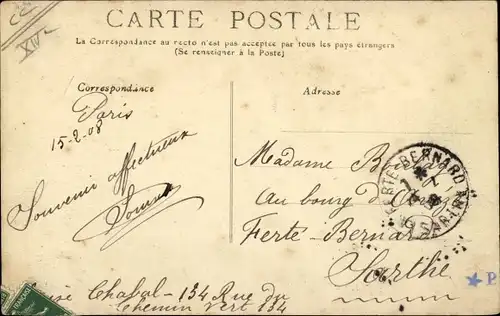 CARTE POSTALE
La Correspondance au recto n'est pas acceptée par tous les pays étrangers
(Se renseigner à la Poste)
Correspondance
Adresse
Paris
15-2-08
Souvenir affectueux
Madame
au bourg
Ferté-Bernard
Sarthe
Chabal - 134 Rue du
Chemin Vert 134
BERNARD
P